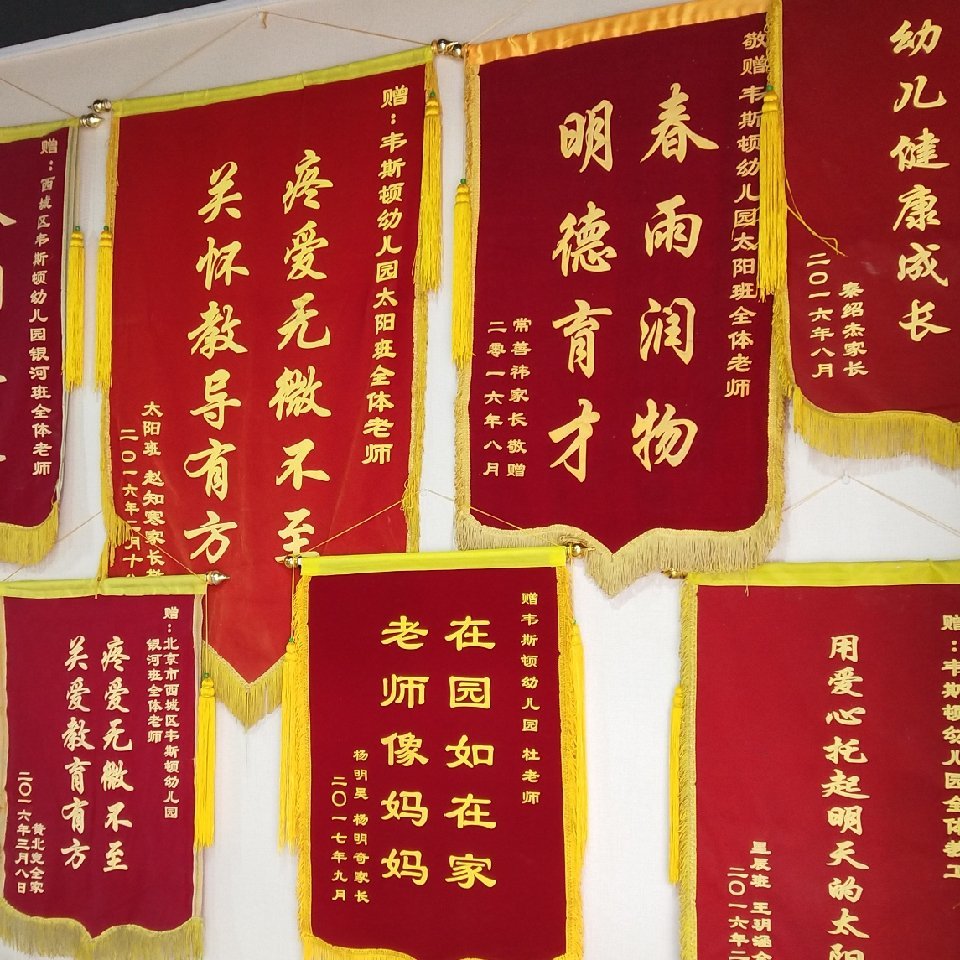 赠：西城区韦斯顿幼儿园银河班全体老师
赠：韦斯顿幼儿园太阳班全体老师
疼爱无微不至
关怀教导有方
太阳班 赵知寒家长
二〇一六年
敬赠韦斯顿幼儿园太阳班全体老师
春雨润物
明德育才
常善祎家长敬赠
二零一六年八月
幼儿健康成长
秦绍杰家长
二〇一六年八月
赠：北京市西城区韦斯顿幼儿园
银河班全体老师
疼爱无微不至
关爱教育有方
黄北克全家
二〇一六年三月八日
赠韦斯顿幼儿园 杜老师
在园如在家
老师像妈妈
杨明昊 杨明奇家长
二〇一七年九月
赠：韦斯顿幼儿园全体教工
用爱心托起明天的太阳
星辰班 王玥涵
二〇一六年